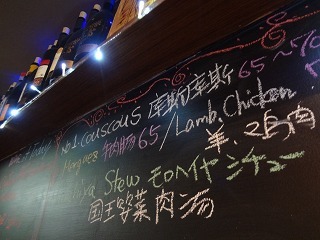 No.1 Couscous 库斯库斯 65~70
Merguez 羊肉肠 65 / Lamb. Chicken
羊、鸡肉
Stew モロヘイヤシチュー
国王菜肉汤